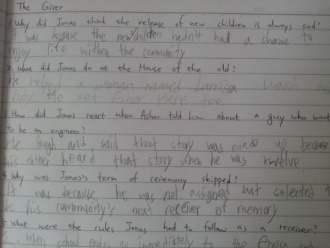 The Giver
Why did Jonas think the release of new children is always sad?
was because the new children hadn't had a chance to
enjoy life within the community
2. What did Jonas do at the House of the old?
He a woman named Larissa wash
not Asher were
How did Jonas react when Asher told him about a guy who want
to be an engineer?
He laugh and said that story was made up because
his sister heard that story when he was twelve
Why was Jonas's term of ceremony skipped?
It was because he was not assigned but selected
his community's next receiver of memory
5. What were the rules Jonas had to follow as a receiver?
When school ends, immediately to the